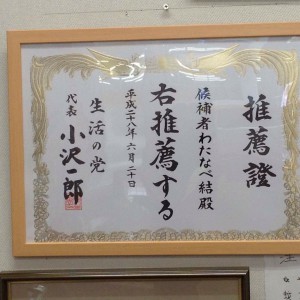 推薦證
候補者わたなべ結殿
右推薦する
平成二十八年 六月 二十日
生活の党
代表 小沢一郎